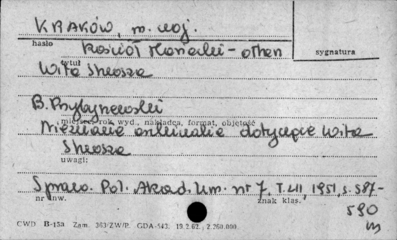 KRAKÓW, m. woj.
hasło
Kościół Mariacki - ołtarz
sygnatura
tytuł
Wita Stwosza
B. Przybyszewski
miejsce, rok wyd., nakładca, format, objętość
Nieznane archiwalia dotyczące Wita
Stwosza
uwagi:
Spraw. Pol. Akad. Um. nr 7, T. LII, 1951, s. 587-
590
nr inw.
znak klas.
m
CWD B-15a Zam. 363/ZW/P. GDA-543. 19.2.62. 2.760.000